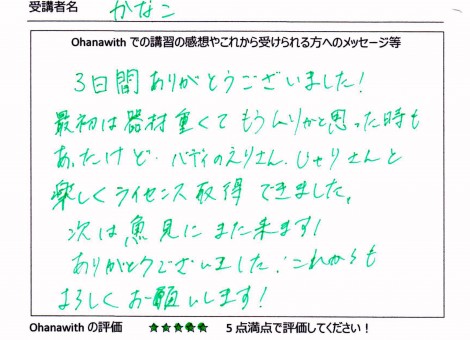 受講者名 かなこ
Ohanawith での講習の感想やこれから受けられる方へのメッセージ等
3日間ありがとうございました!
最初は器材重くてもうムリかと思った時も
あったけど、バディのえりさん、じゅりさんと
楽しくライセンス取得できました。
次は魚見にまた来ます!
ありがとうございました!これからも
よろしくお願いします!
Ohanawith の評価 ★★★★★ 5点満点で評価してください!